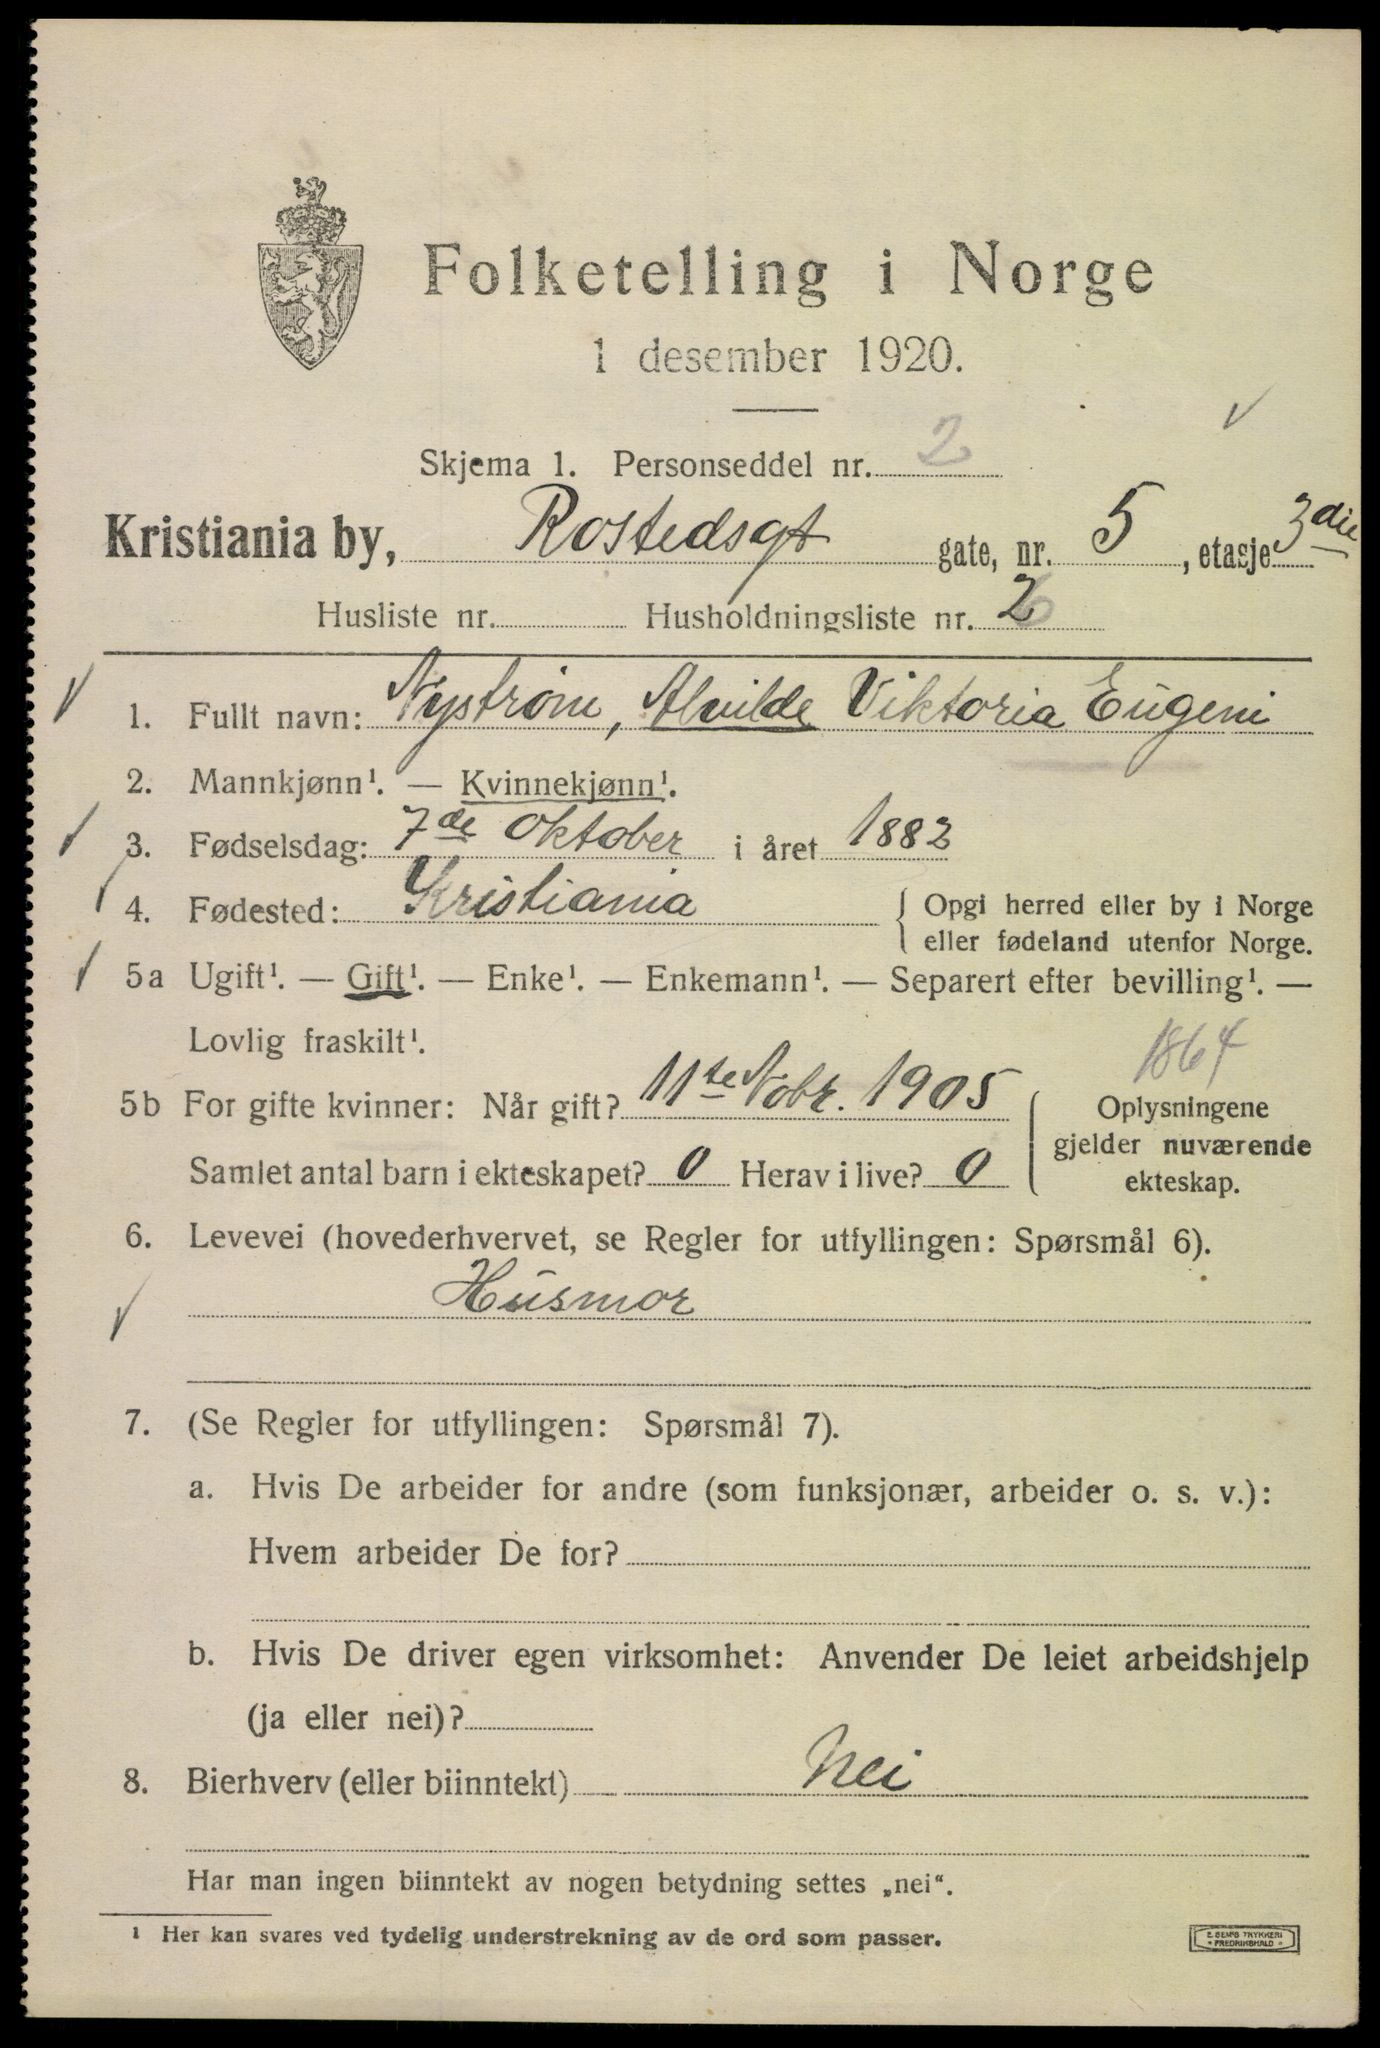 Folketelling i Norge
1 desember 1920.
Skjema 1. Personseddel nr. 2
Kristiania by, Rostedsgt gate, nr. 5, etasje 3die
Husliste nr. Husholdningsliste nr. 2
1. Fullt navn: Nystrøm, Alvilde Viktoria Eugeni
2. Mannkjønn¹. — Kvinnekjønn¹.
3. Fødselsdag: 7de Oktober i året 1882
4. Fødested: Kristiania { Opgi herred eller by i Norge
eller fødeland utenfor Norge.
5a Ugift¹. — Gift¹. — Enke¹. — Enkemann¹. — Separert efter bevilling¹. —
Lovlig fraskilt¹.
1864
5b For gifte kvinner: Når gift? 11te Nobr. 1905 { Oplysningene
gjelder nuværende
Samlet antal barn i ekteskapet? 0 Herav i live? 0 ekteskap.
6. Levevei (hovederhvervet, se Regler for utfyllingen: Spørsmål 6).
Husmor
7. (Se Regler for utfyllingen: Spørsmål 7).
a. Hvis De arbeider for andre (som funksjonær, arbeider o. s. v.):
Hvem arbeider De for?
b. Hvis De driver egen virksomhet: Anvender De leiet arbeidshjelp
(ja eller nei)?
8. Bierhverv (eller biinntekt) Nei
Har man ingen biinntekt av nogen betydning settes „nei“.
¹ Her kan svares ved tydelig understrekning av de ord som passer.
E. SEM'S TRYKKERI
FREDRIKSHALD